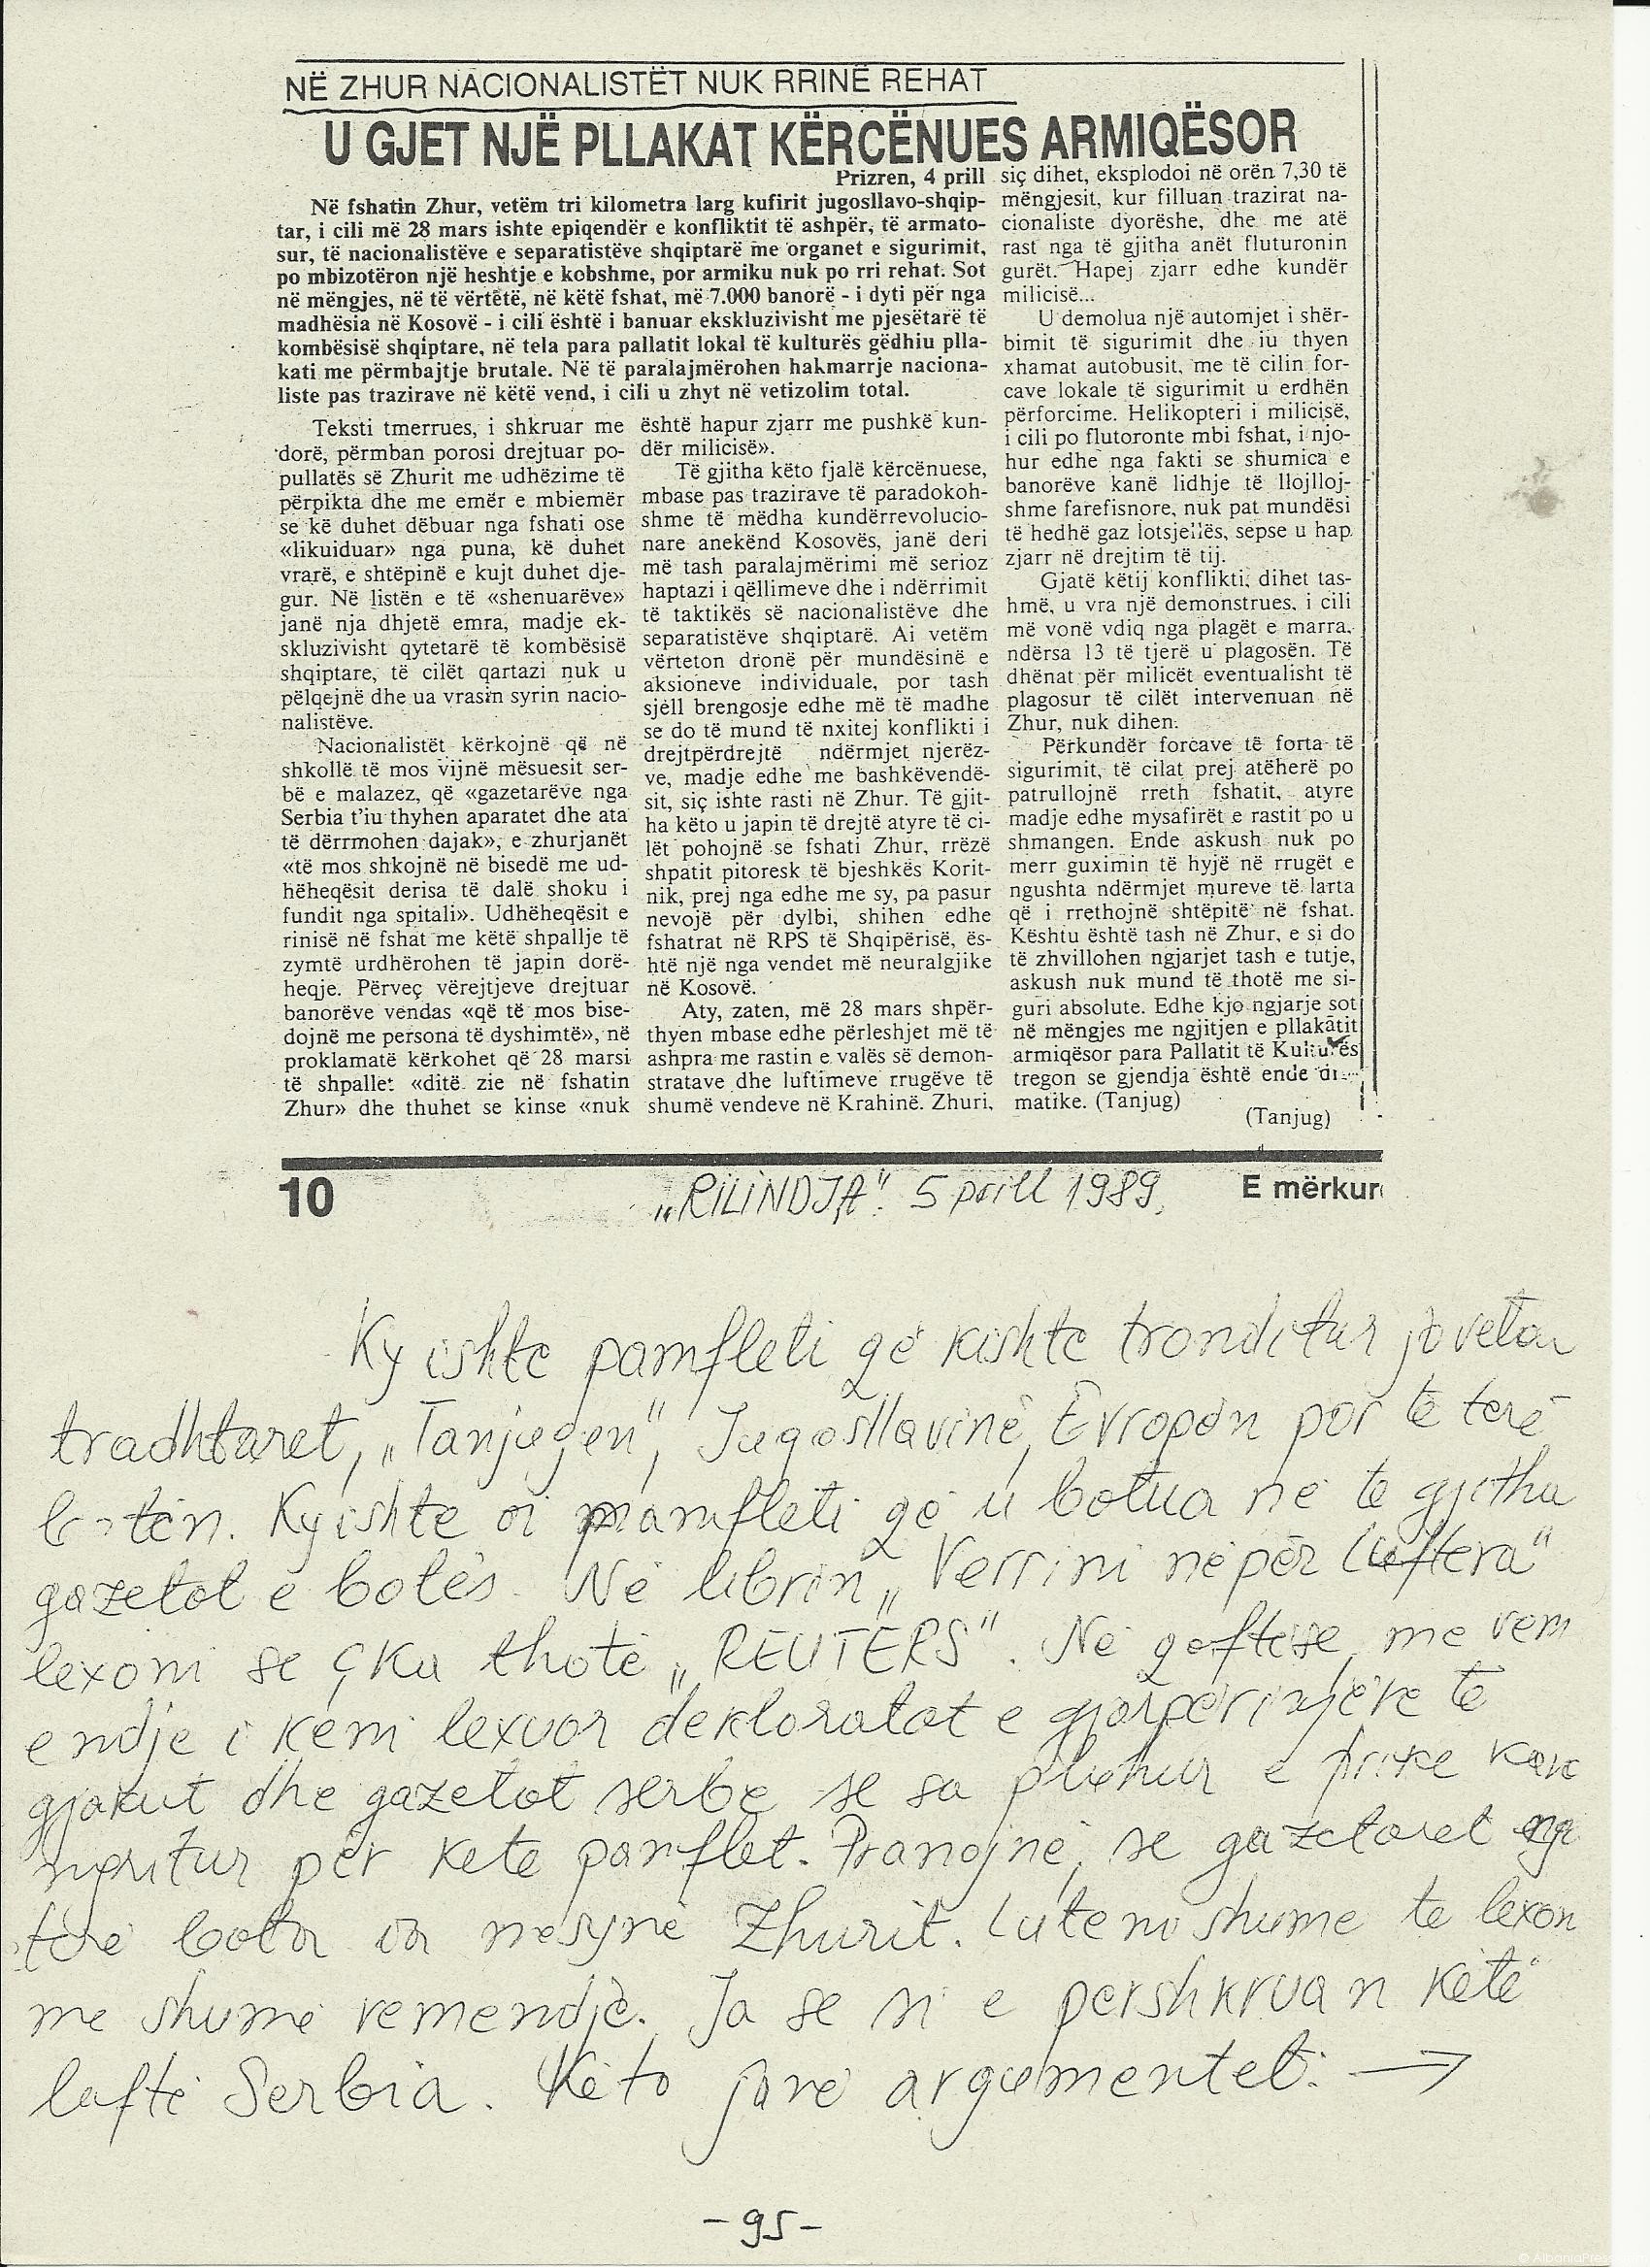 NË ZHUR NACIONALISTËT NUK RRINË REHAT
U GJET NJË PLLAKAT KËRCËNUES ARMIQËSOR
Prizren, 4 prill
Në fshatin Zhur, vetëm tri kilometra larg kufirit jugosllavo-shqip-
tar, i cili më 28 mars ishte epiqendër e konfliktit të ashpër, të armato-
sur, të nacionalistëve e separatistëve shqiptarë me organet e sigurimit,
po mbizotëron një heshtje e kobshme, por armiku nuk po rri rehat. Sot
në mëngjes, në të vërtëtë, në këtë fshat, më 7.000 banorë - i dyti për nga
madhësia në Kosovë - i cili është i banuar ekskluzivisht me pjesëtarë të
kombësisë shqiptare, në tela para pallatit lokal të kulturës gëdhiu plla-
kati me përmbajtje brutale. Në të paralajmërohen hakmarrje naciona-
liste pas trazirave në këtë vend, i cili u zhyt në vetizolim total.
Teksti tmerrues, i shkruar me
dorë, përmban porosi drejtuar po-
pullatës së Zhurit me udhëzime të
përpikta dhe me emër e mbiemër
se kë duhet dëbuar nga fshati ose
«likuiduar» nga puna, kë duhet
vrarë, e shtëpinë e kujt duhet dje-
gur. Në listën e të «shenuarëve»
janë nja dhjetë emra, madje ek-
skluzivisht qytetarë të kombësisë
shqiptare, të cilët qartazi nuk u
pëlqejnë dhe ua vrasin syrin nacio-
nalistëve.
Nacionalistët kërkojnë që në
shkollë të mos vijnë mësuesit ser-
bë e malazez, që «gazetarëve nga
Serbia t'iu thyhen aparatet dhe ata
të dërrmohen dajak», e zhurjanët
«të mos shkojnë në bisedë me ud-
hëheqësit derisa të dalë shoku i
fundit nga spitali». Udhëheqësit e
rinisë në fshat me këtë shpallje të
zymtë urdhërohen të japin dorë-
heqje. Përveç vërejtjeve drejtuar
banorëve vendas «që të mos bise-
dojnë me persona të dyshimtë», në
proklamatë kërkohet që 28 marsi
të shpallet «ditë zie në fshatin
Zhur» dhe thuhet se kinse «nuk
është hapur zjarr me pushkë kun-
dër milicisë».
Të gjitha këto fjalë kërcënuese,
mbase pas trazirave të paradokoh-
shme të mëdha kundërrevolucio-
nare anekënd Kosovës, janë deri
më tash paralajmërimi më serioz
haptazi i qëllimeve dhe i ndërrimit
të taktikës së nacionalistëve dhe
separatistëve shqiptarë. Ai vetëm
vërteton dronë për mundësinë e
aksioneve individuale, por tash
sjëll brengosje edhe më të madhe
se do të mund të nxitej konflikti i
drejtpërdrejtë ndërmjet njerëz-
ve, madje edhe me bashkëvendë-
sit, siç ishte rasti në Zhur. Të gjit-
ha këto u japin të drejtë atyre të ci-
lët pohojnë se fshati Zhur, rrëzë
shpatit pitoresk të bjeshkës Korit-
nik, prej nga edhe me sy, pa pasur
nevojë për dylbi, shihen edhe
fshatrat në RPS të Shqipërisë, ës-
htë një nga vendet më neuralgjike
në Kosovë.
Aty, zaten, më 28 mars shpër-
thyen mbase edhe përleshjet më të
ashpra me rastin e valës së demon-
stratave dhe luftimeve rrugëve të
shumë vendeve në Krahinë. Zhuri,
siç dihet, eksplodoi në orën 7,30 të
mëngjesit, kur filluan trazirat na-
cionaliste dyorëshe, dhe me atë
rast nga të gjitha anët fluturonin
gurët. Hapej zjarr edhe kundër
milicisë...
U demolua një automjet i shër-
bimit të sigurimit dhe iu thyen
xhamat autobusit, me të cilin for-
cave lokale të sigurimit u erdhën
përforcime. Helikopteri i milicisë,
i cili po flutoronte mbi fshat, i njo-
hur edhe nga fakti se shumica e
banorëve kanë lidhje të llojlloj-
shme farefisnore, nuk pat mundësi
të hedhë gaz lotsjellës, sepse u hap
zjarr në drejtim të tij.
Gjatë këtij konflikti, dihet tas-
hmë, u vra një demonstrues, i cili
më vonë vdiq nga plagët e marra,
ndërsa 13 të tjerë u plagosën. Të
dhënat për milicët eventualisht të
plagosur të cilët intervenuan në
Zhur, nuk dihen.
Përkundër forcave të forta të
sigurimit, të cilat prej atëherë po
patrullojnë rreth fshatit, atyre
madje edhe mysafirët e rastit po u
shmangen. Ende askush nuk po
merr guximin të hyjë në rrugët e
ngushta ndërmjet mureve të larta
që i rrethojnë shtëpitë në fshat.
Kështu është tash në Zhur, e si do
të zhvillohen ngjarjet tash e tutje,
askush nuk mund të thotë me si-
guri absolute. Edhe kjo ngjarje sot
në mëngjes me ngjitjen e pllakatit
armiqësor para Pallatit të Kulturës
tregon se gjendja është ende
matike. (Tanjug)
(Tanjug)
10 „RILINDJA". 5 prill 1989. E mërkur
Ky ishte pamfleti që kishte tronditur jo vetëm
tradhtaret, „Tanjugen", Jugosllavinë, Evropën por të terë
botën. Ky ishte ai pamfleti që u botua në te gjitha
gazetat e botës. Në librin „Verrini nëpër luftëra"
lexoni se çka thotë „REUTERS". Në qoftëse me vem
endje i kemi lexuar deklaratat e gjarpërinjëve të
gjakut dhe gazetat serbe se sa pluhur e
ngritur për kete pamflet. Pranojnë, se gazetaret nga
tërë bota ia mësynë Zhurit. Lutemi shume te lexon
me shumë vemendje. Ja se si e pershkruan këtë
luftë Serbia. Këto janë argumentet: →
- 95 -
© AlbaniaPre